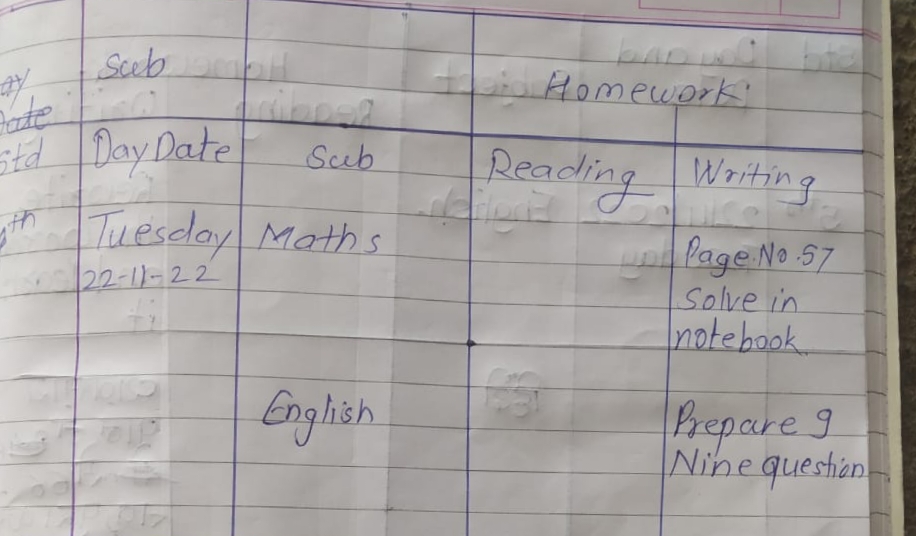 Sub
Homework
Date
Std Day Date Sub Reading Writing
th Tuesday Maths Page.No.57
22-11-22 Solve in
notebook
English Prepare 9
Nine question